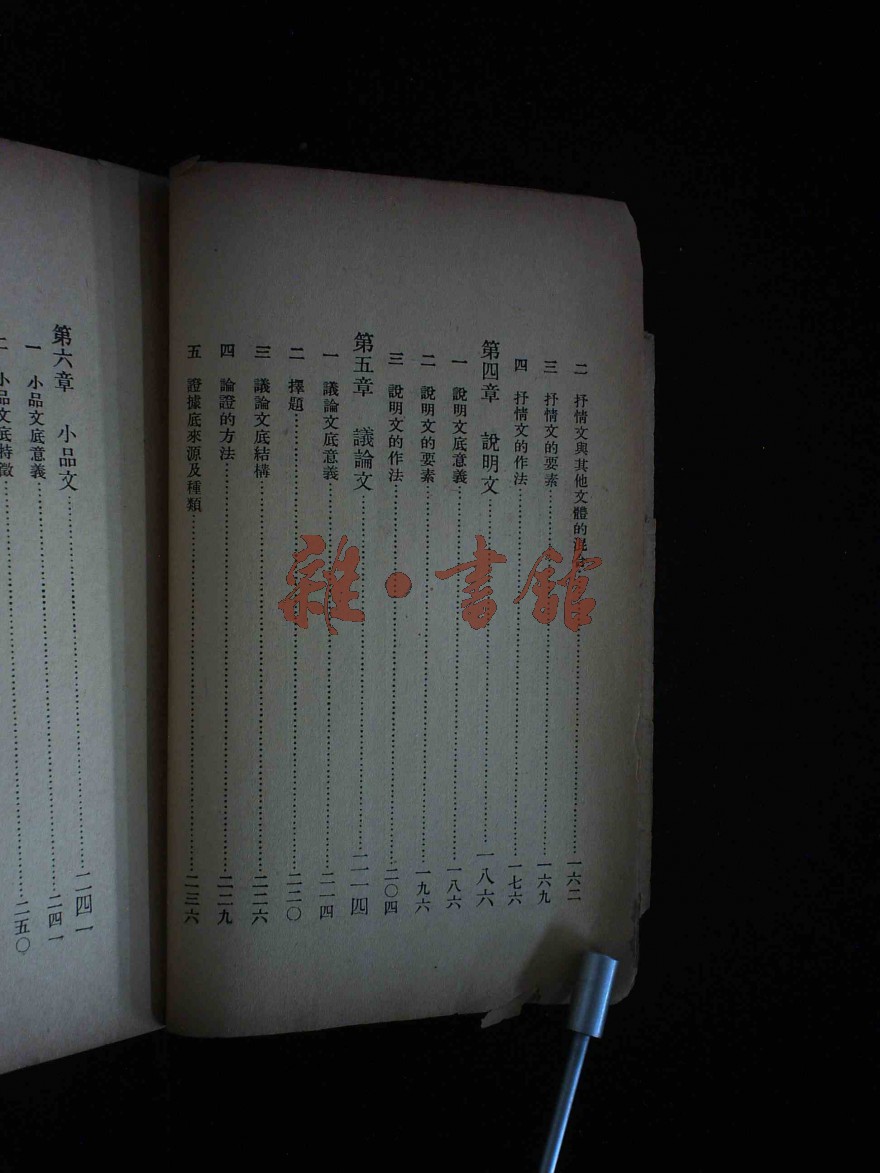 二 抒情文與其他文體的混合……一六二
三 抒情文的要素……一六九
四 抒情文的作法……一七六
第四章 說明文……一八六
一 說明文底意義……一八六
二 說明文的要素……一九六
三 說明文的作法……二〇四
第五章 議論文……二一四
一 議論文底意義……二一四
二 擇題……二二〇
三 議論文底結構……二二六
四 論證的方法……二二九
五 證據底來源及種類……二三六
第六章 小品文……二四一
一 小品文底意義……二四一
二 小品文底特徵……二五〇
雜·書館